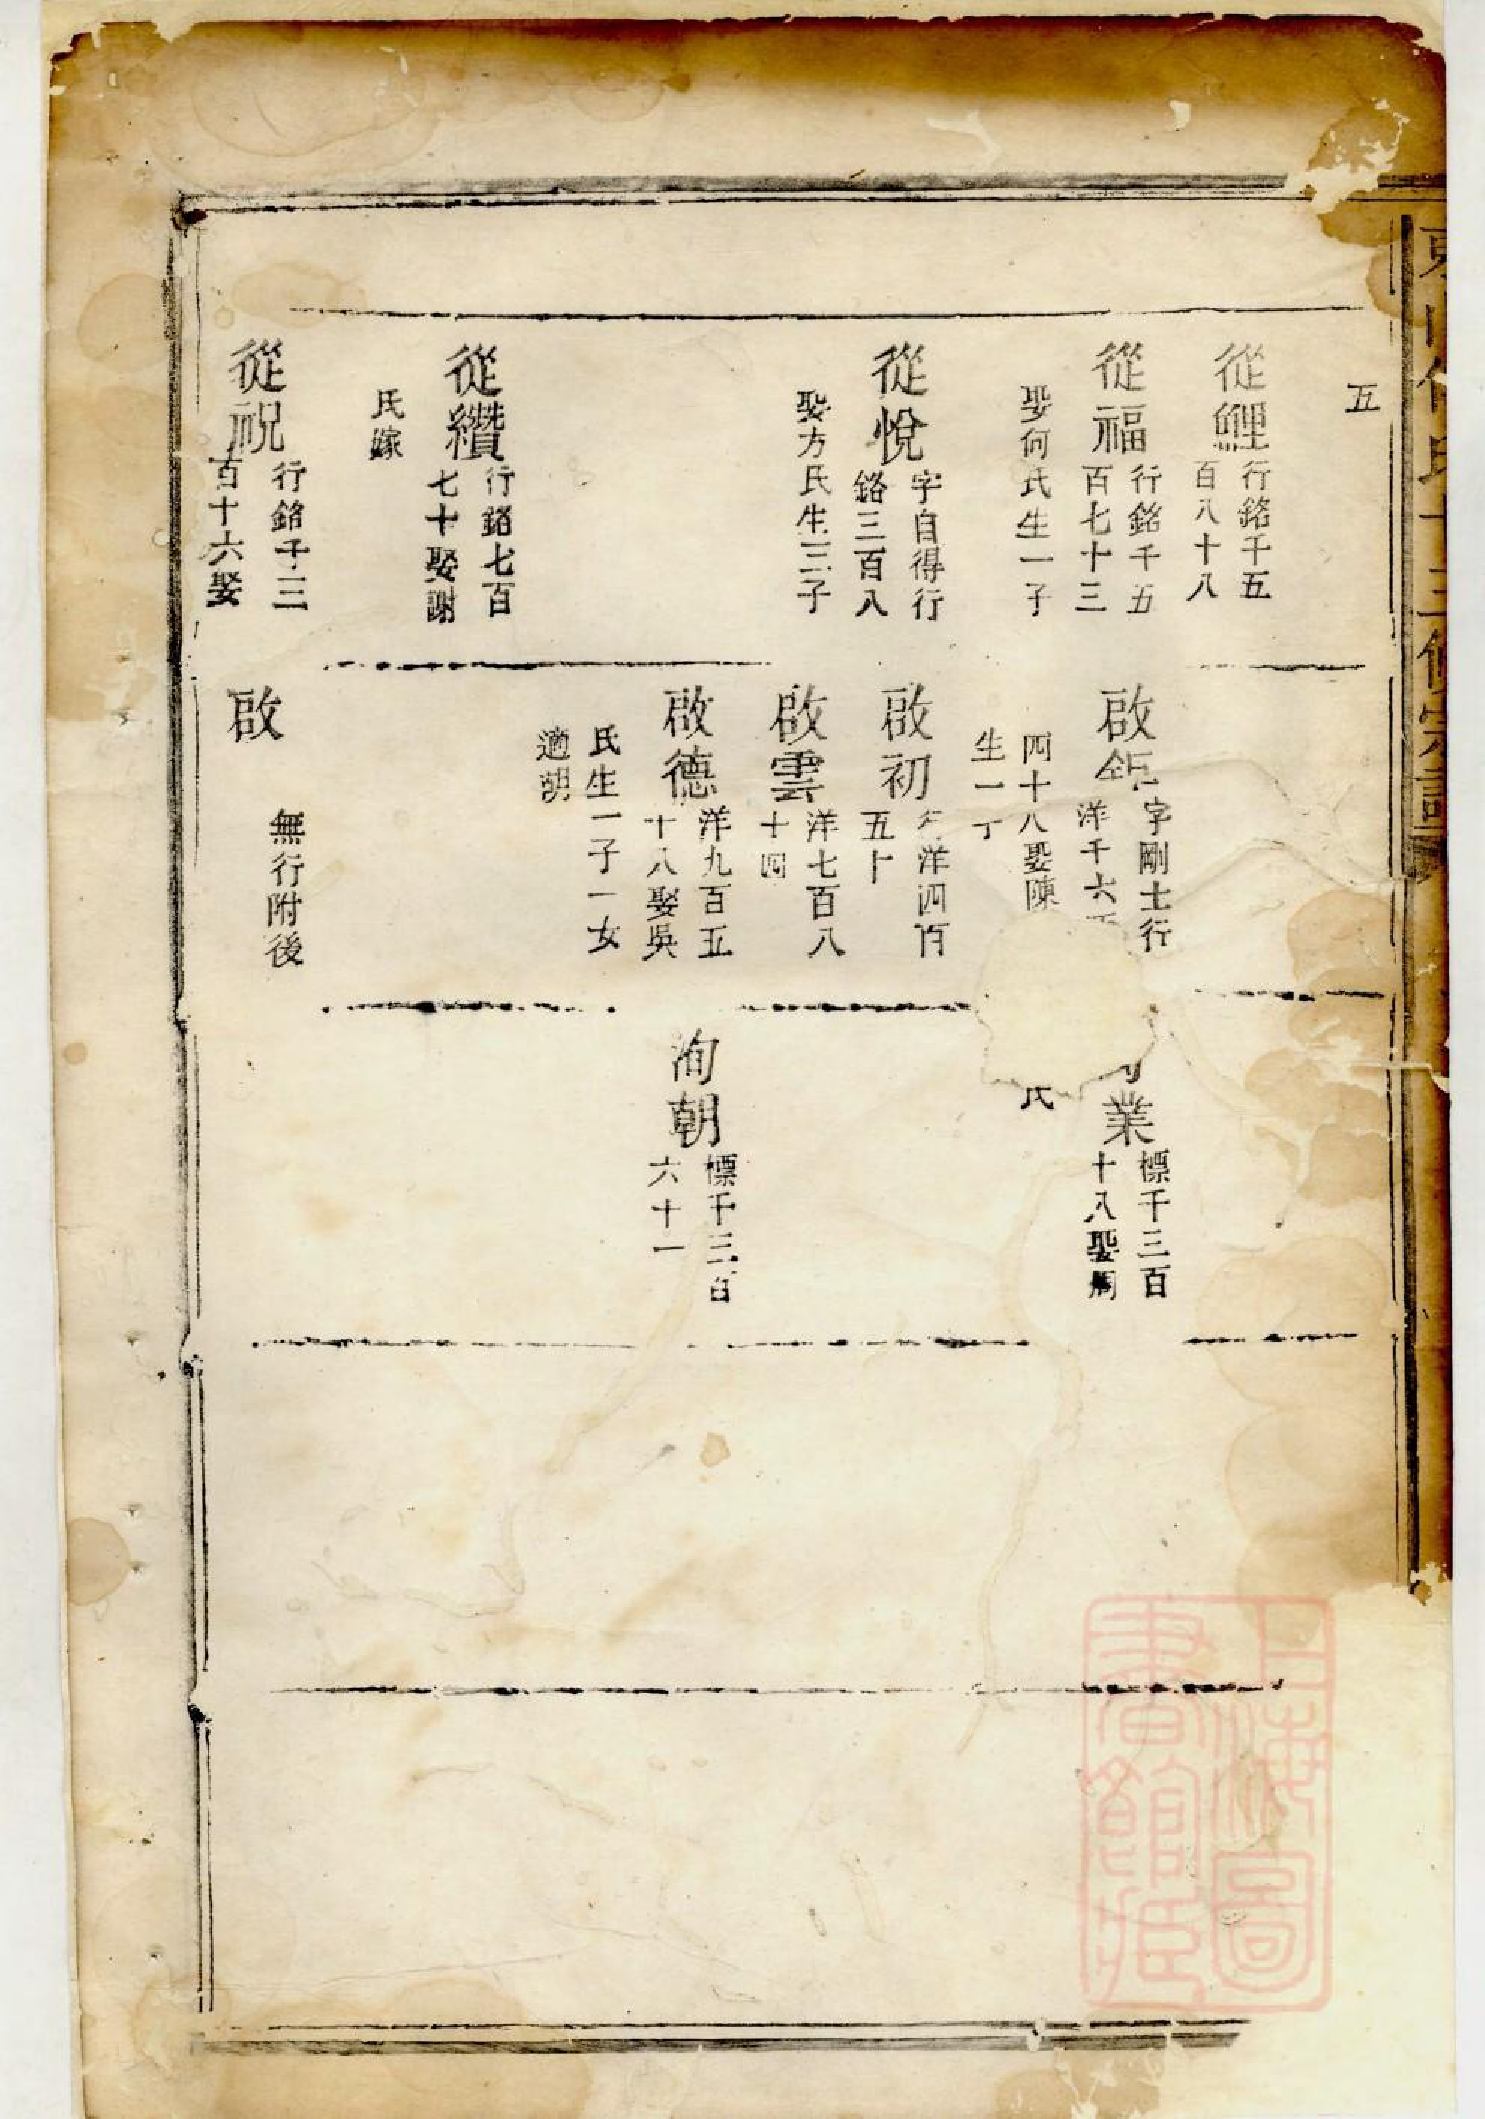 五
從鯉
行銘千五
百八十八
從福
行銘千五
百七十三
娶何氏生一子
從悅
字自得行
銘三百八
娶方氏生三子
從纘
行銘七百
七十娶謝
氏嫁
從祝
行銘千三
百十六娶
啟鉅
字剛士行
洋千六
四十八娶陳
生一子
啟初
行洋四百
五十
啟雲
洋七百八
十四
啟德
洋九百五
十八娶吳
氏生一子一女
適胡
啟
無行附後
業
標千三百
十八娶周
氏
洵朝
標千三百
六十一
上海圖
書館藏